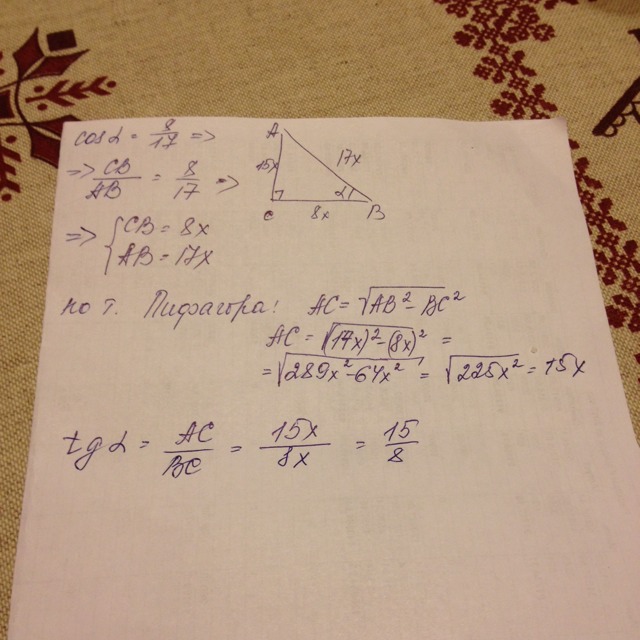 cos α = 8/17 =>
=> CB/AB = 8/17 =>
=> { CB = 8x
AB = 17x
A
15x
17x
α
C
8x
B
по т. Пифагора: AC = √AB² - BC²
AC = √(17x)² - (8x)² =
= √289x² - 64x² = √225x² = 15x
tg α = AC/BC = 15x/8x = 15/8